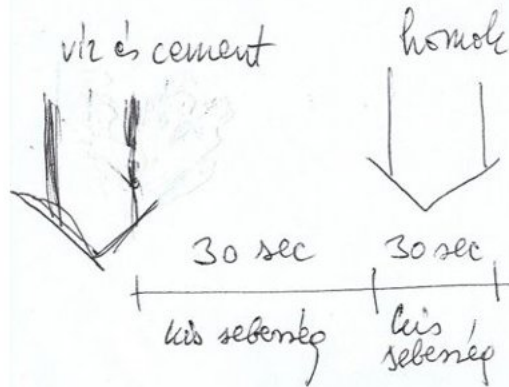 víz és cement
homok
30 sec
30 sec
kis sebesség
kis
sebesség